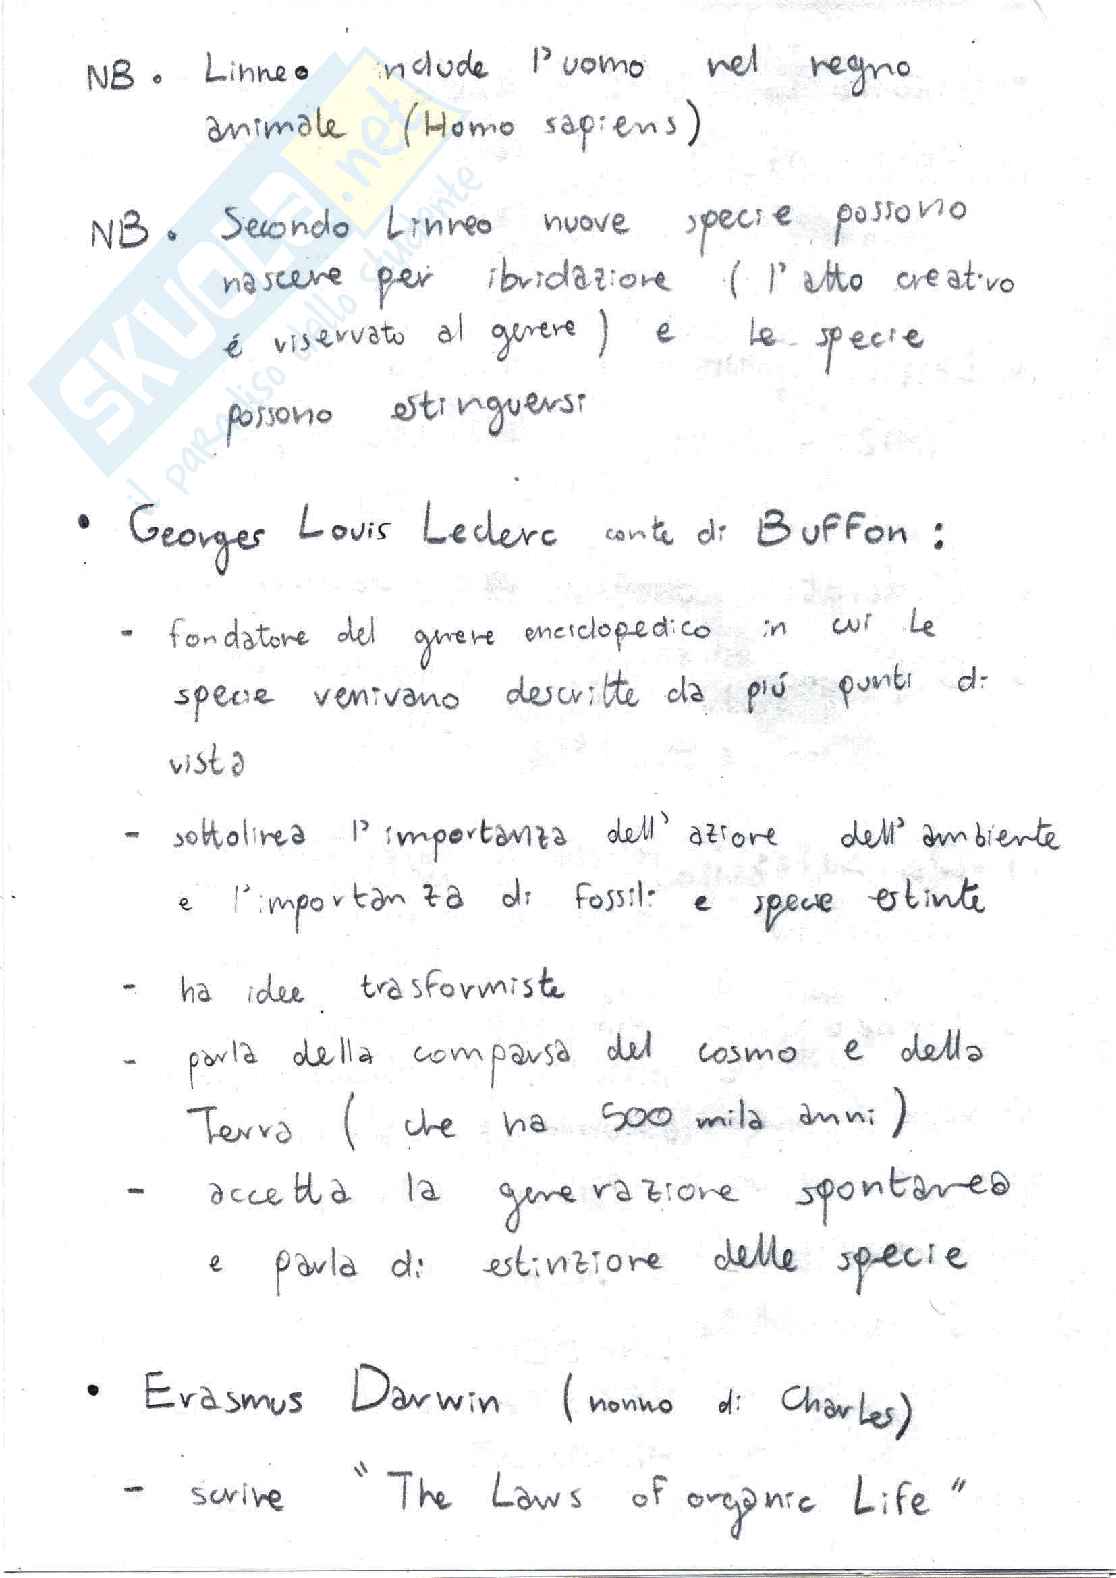 NB. Linneo include l'uomo nel regno
animale (Homo sapiens)
NB. Secondo Linneo nuove specie possono
nascere per ibridazione (l'atto creativo
é riservato al genere) e le specie
possono estinguersi
SKUOLA.net
il paradiso dello studente
• Georges Louis Leclerc conte di Buffon:
- fondatore del genere enciclopedico in cui le
specie venivano descritte da piú punti di
vista
- sottolinea l'importanza dell'azione dell'ambiente
e l'importanza di fossili e specie estinte
- ha idee trasformiste
- parla della comparsa del cosmo e della
Terra (che ha 500 mila anni)
- accetta la generazione spontanea
e parla di estinzione delle specie
• Erasmus Darwin (nonno di Charles)
- scrive "The Laws of organic Life"